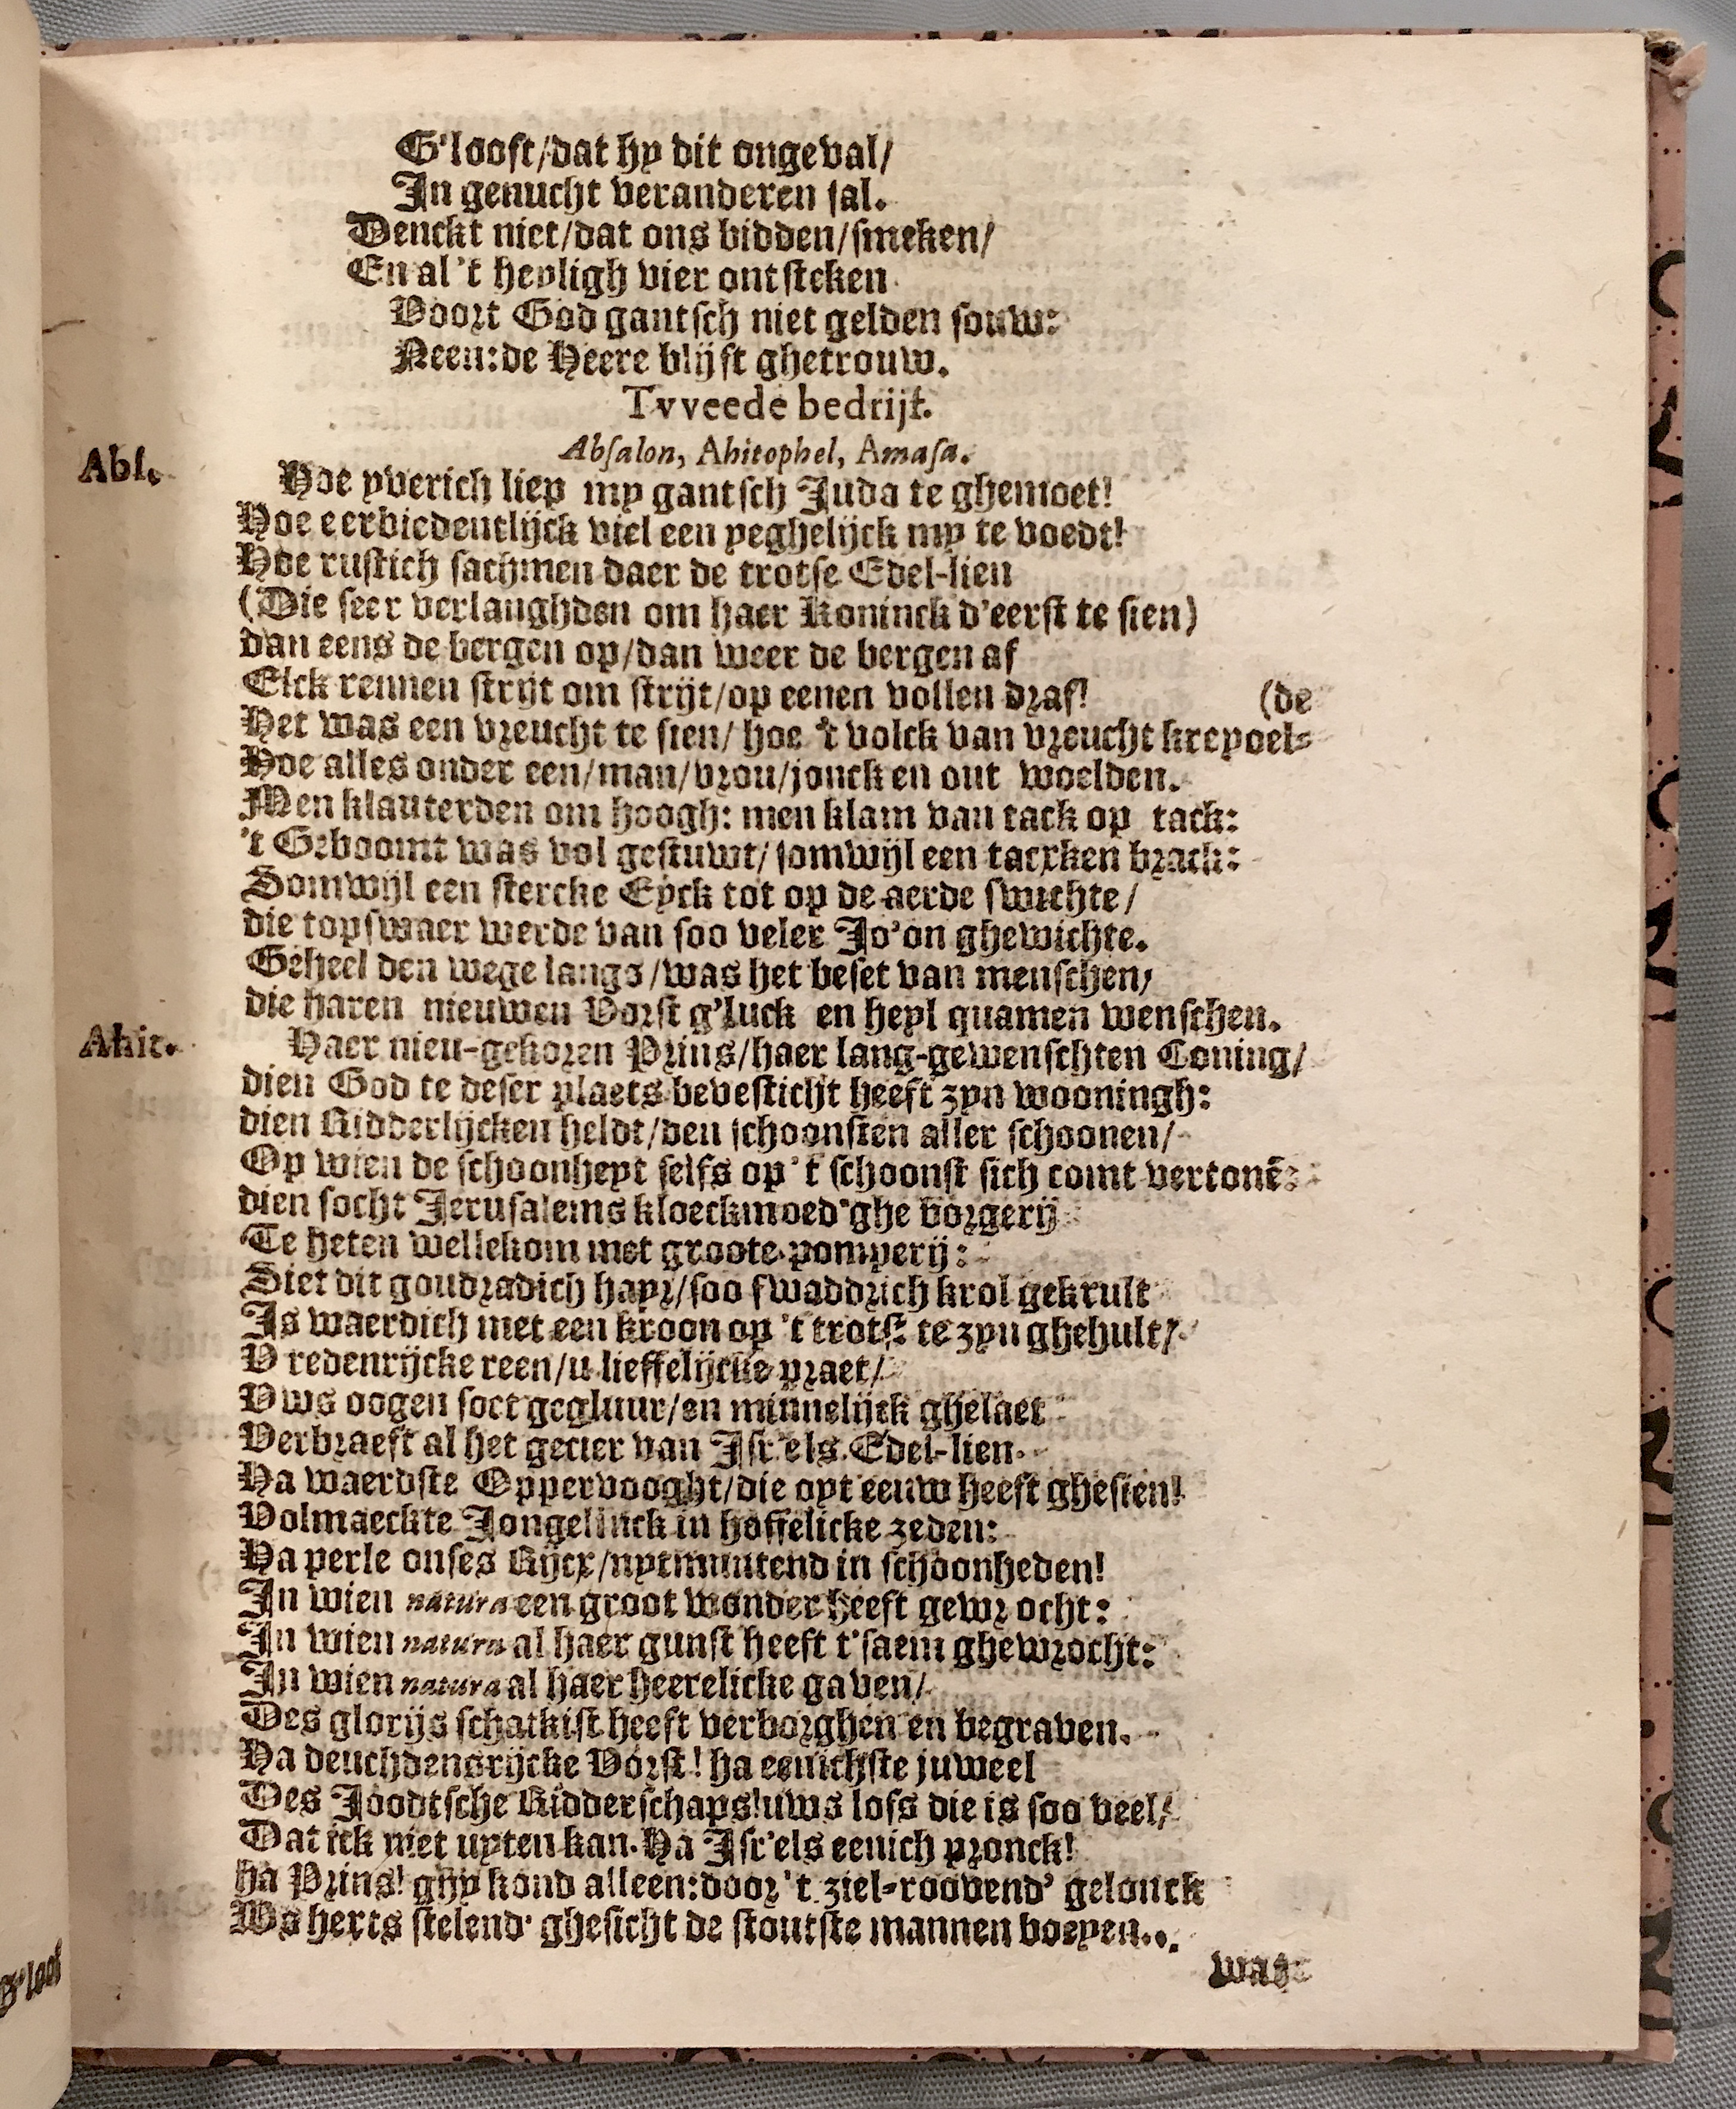 G'looft/dat hy dit ongeval/
In genucht veranderen sal.
Denckt niet/dat ons bidden/smeken/
En al 't heyligh vier ontsteken
Voort God gantsch niet gelden souw:
Neen:de Heere blijft ghetrouw.
Tvveede bedrijf.
Absalon, Ahitophel, Amasa.
Abs. Hoe yverich liep my gantsch Juda te ghemoet!
Hoe eerbiedentlijck viel een yeghelijck my te voedt!
Hoe rustich sachmen daer de trotse Edel-lien
(Die seer verlanghden om haer Koninck d'eerst te sien)
dan eens de bergen op/dan weer de bergen af
Elck rennen strijt om strijt/op eenen vollen draf! (de
Het was een vreucht te sien/ hoe 't volck van vreucht kreyoel-
Hoe alles onder een/man/vrou/jonck en out woelden.
Men klauterden om hoogh: men klam van tack op tack:
't Geboomt was vol gestuwt/ somwijl een tacxken brack:
Somwijl een stercke Eyck tot op de aerde swichte/
die topswaer werde van soo veler Jo'on ghewichte.
Geheel den wege langs/was het beset van menschen/
die haren nieuwen Vorst g'luck en heyl quamen wenschen.
Ahit. Haer nieu-gekoren Prins/haer lang-gewenschten Coning/
dien God te deser plaets bevesticht heeft zyn wooningh:
dien Ridderlijcken heldt/den schoonsten aller schoonen/
Op wien de schoonheyt selfs op 't schoonst sich comt vertonē:
dien socht Jerusalems kloeckmoed'ghe borgerij
Te heten wellekom met groote pomperij:
Siet dit goudradich hayr/soo swaddrich krol gekrult
Is waerdich met een kroon op 't trotse te zyn ghehult/
V redenrijcke reen/u lieffelijcke praet/
Vws oogen soet gegluur/en minnelijck ghelaet
Verbraeft al het gecier van Isr'els Edel-lien.
Ha waerdste Oppervooght/die oyt eeuw heeft ghesien!
Volmaeckte Jongelinck in hoffelicke zeden:
Ha perle onses Rijcx/uytmuntend in schoonheden!
In wien natura een groot wonder heeft gewrocht:
In wien natura al haer gunst heeft t'saem ghewrocht:
In wien natura al haer heerelicke gaven/
Des glorijs schatkist heeft verborghen en begraven.
Ha deuchdensrijcke Vorst! ha eenichste juweel
Des Joodtsche Ridderschaps!uws lofs die is soo veel/
Dat ick niet uyten kan. Ha Isr'els eenich pronck!
ha Prins! ghy kond alleen:door 't ziel-roovend' gelonck
Ws herts stelend' ghesicht de stoutste mannen boeyen..
waer
G'loof